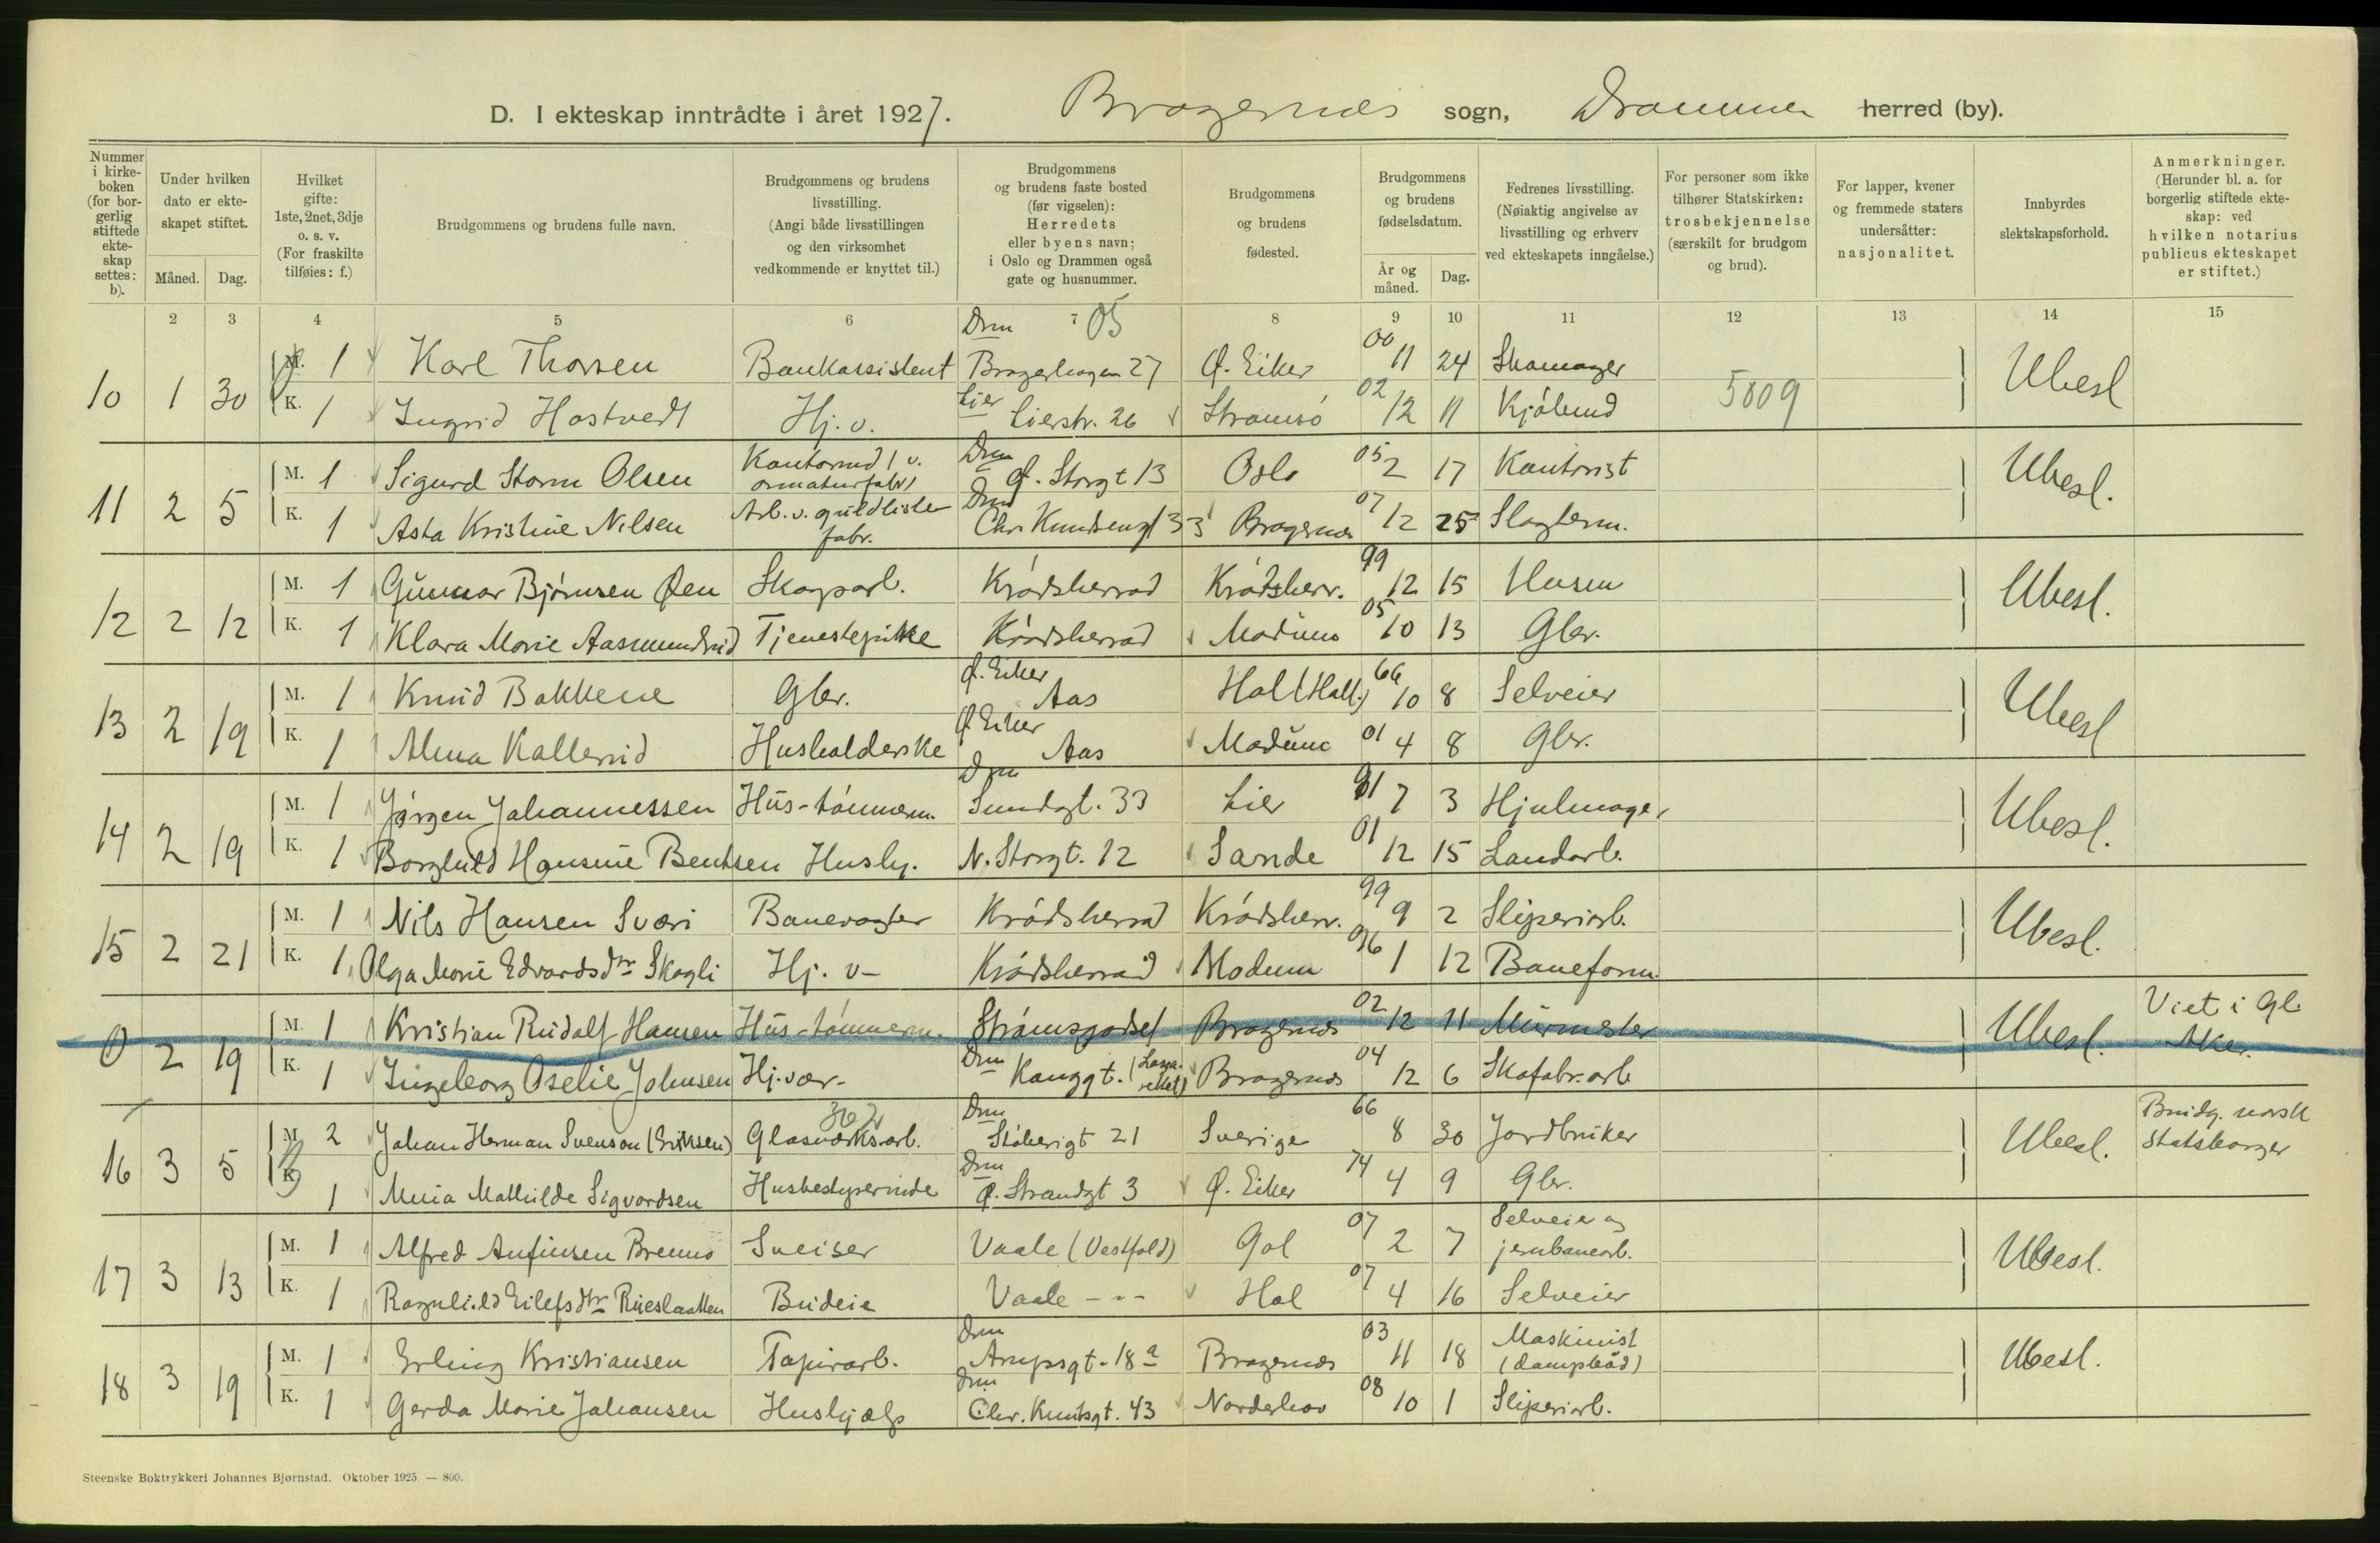 D. I ekteskap inntrådte i året 1927. Bragernæs sogn, Drammen herred (by).
Nummer i kirkeboken (for borgerlig stiftede ekteskap settes: b).
Under hvilken dato er ekteskapet stiftet.
Måned. Dag.
Hvilket gifte: 1ste, 2net, 3dje o. s. v. (For fraskilte tilføies: f.)
Brudgommens og brudens fulle navn.
Brudgommens og brudens livsstilling. (Angi både livsstillingen og den virksomhet vedkommende er knyttet til.)
Brudgommens og brudens faste bosted (før vigselen): Herredets eller byens navn; i Oslo og Drammen også gate og husnummer.
Brudgommens og brudens fødested.
Brudgommens og brudens fødselsdatum.
År og måned. Dag.
Fedrenes livsstilling. (Nøiaktig angivelse av livsstilling og erhverv ved ekteskapets inngåelse.)
For personer som ikke tilhører Statskirken: trosbekjennelse (særskilt for brudgom og brud).
For lapper, kvener og fremmede staters undersåtter: nasjonalitet.
Innbyrdes slektskapsforhold.
Anmerkninger. (Herunder bl. a. for borgerlig stiftede ekteskap: ved hvilken notarius publicus ekteskapet er stiftet.)
2 3 4 5 6 7 8 9 10 11 12 13 14 15
05
10 1 30 M. 1 Karl Thorsen Bankassistent Drm Bragerhagen 27 Ø. Eiker 00 11 24 Skomager Ubesl
K. 1 Ingrid Hostvedt Hj. v. Lier Lierstr. 26 Strømsø 02 12 11 Kjøbmd 5809
11 2 5 M. 1 Sigurd Storm Olsen Kontormd v. armaturfabr. Drm Ø. Storgt 13 Oslo 05 2 17 Kontorist Ubesl.
K. 1 Asta Kristine Nilsen Arb. v. guldliste fabr. Drm Chr. Knudsensgt 33 Bragernæs 07 12 25 Slagterm.
12 2 12 M. 1 Gunnar Bjørnsen Øen Skogarb. Krødsherrad Krødsherr. 99 12 15 Husm Ubesl.
K. 1 Klara Marie Aasmundrud Tjenestepike Krødsherrad Modum 05 10 13 Gbr.
13 2 19 M. 1 Knud Bakkene Gbr. Ø. Eiker Aas Hol (Hall.) 66 10 8 Selveier Ubesl
K. 1 Alma Kallerud Husholderske Ø. Eiker Aas Modum 01 4 8 Gbr.
14 2 19 M. 1 Jørgen Johannessen Hus-tømmerm. Drm Sundgt. 33 Lier 91 7 3 Hjulmager Ubesl.
K. 1 Borghild Hansine Bentsen Hushj. N. Storgt. 12 Sande 01 12 15 Landarb.
15 2 21 M. 1 Nils Hansen Sværi Banevogter Krødsherrad Krødsherr. 99 9 2 Sliperiarb. Ubesl.
K. 1 Olga Marie Edvardsdtr Skogli Hj. v- Krødsherrad Modum 96 1 12 Baneform.
0 2 19 M. 1 Kristian Rudolf Hansen Hus-tømmerm. Strømsgodset Bragernæs 02 12 11 Murmester Ubesl. Viet i Gl. Aker.
K. 1 Ingeborg Oselie Johnsen Hj. vær- Drm Konggt. (Lasarettet) Bragernæs 04 12 6 Skofabr.arb
16 3 5 M. 2 Johan Herman Svenson (Eriksen) Glasværksarb. 302 Drm Støberigt 21 Sverige 66 8 30 Jordbruker Ubesl. Brudg. norsk statsborger
K. 1 Mina Mathilde Sigvardsen Husbestyrerinde Drm Ø. Strandgt 3 Ø. Eiker 74 4 9 Gbr.
17 3 13 M. 1 Alfred Anfinsen Bremno Sveiser Vaale (Vestfold) Gol 07 2 7 Selveier og jernbanearb. Ubesl.
K. 1 Ragnhild Eilefsdtr Rueslaatten Budeie Vaale - " - Hol 07 4 16 Selveier
18 3 19 M. 1 Erling Kristiansen Papirarb. Drm Arupsgt. 18a Bragernæs 03 11 18 Maskinist (dampbåd) Ubesl.
K. 1 Gerda Marie Johansen Hushjælp Drm Chr. Knudsgt. 43 Norderhov 08 10 1 Sliperiarb.
Steenske Boktrykkeri Johannes Bjørnstad. Oktober 1925 — 800.